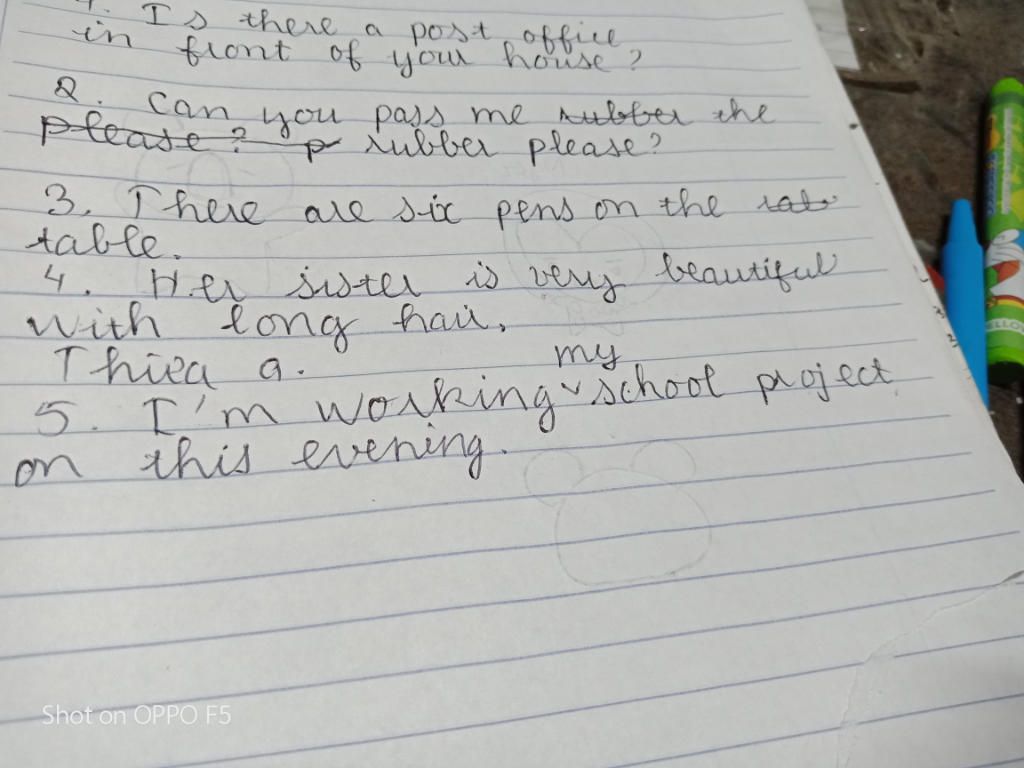 1. Is there a post office
in front of your house?
2. Can you pass me rubber the
please? p rubber please?
3. There are six pens on the tab
table.
4. Her sister is very beautiful
with long hair.
a.
my
5. I'm working school project
on this evening.
Shot on OPPO F5